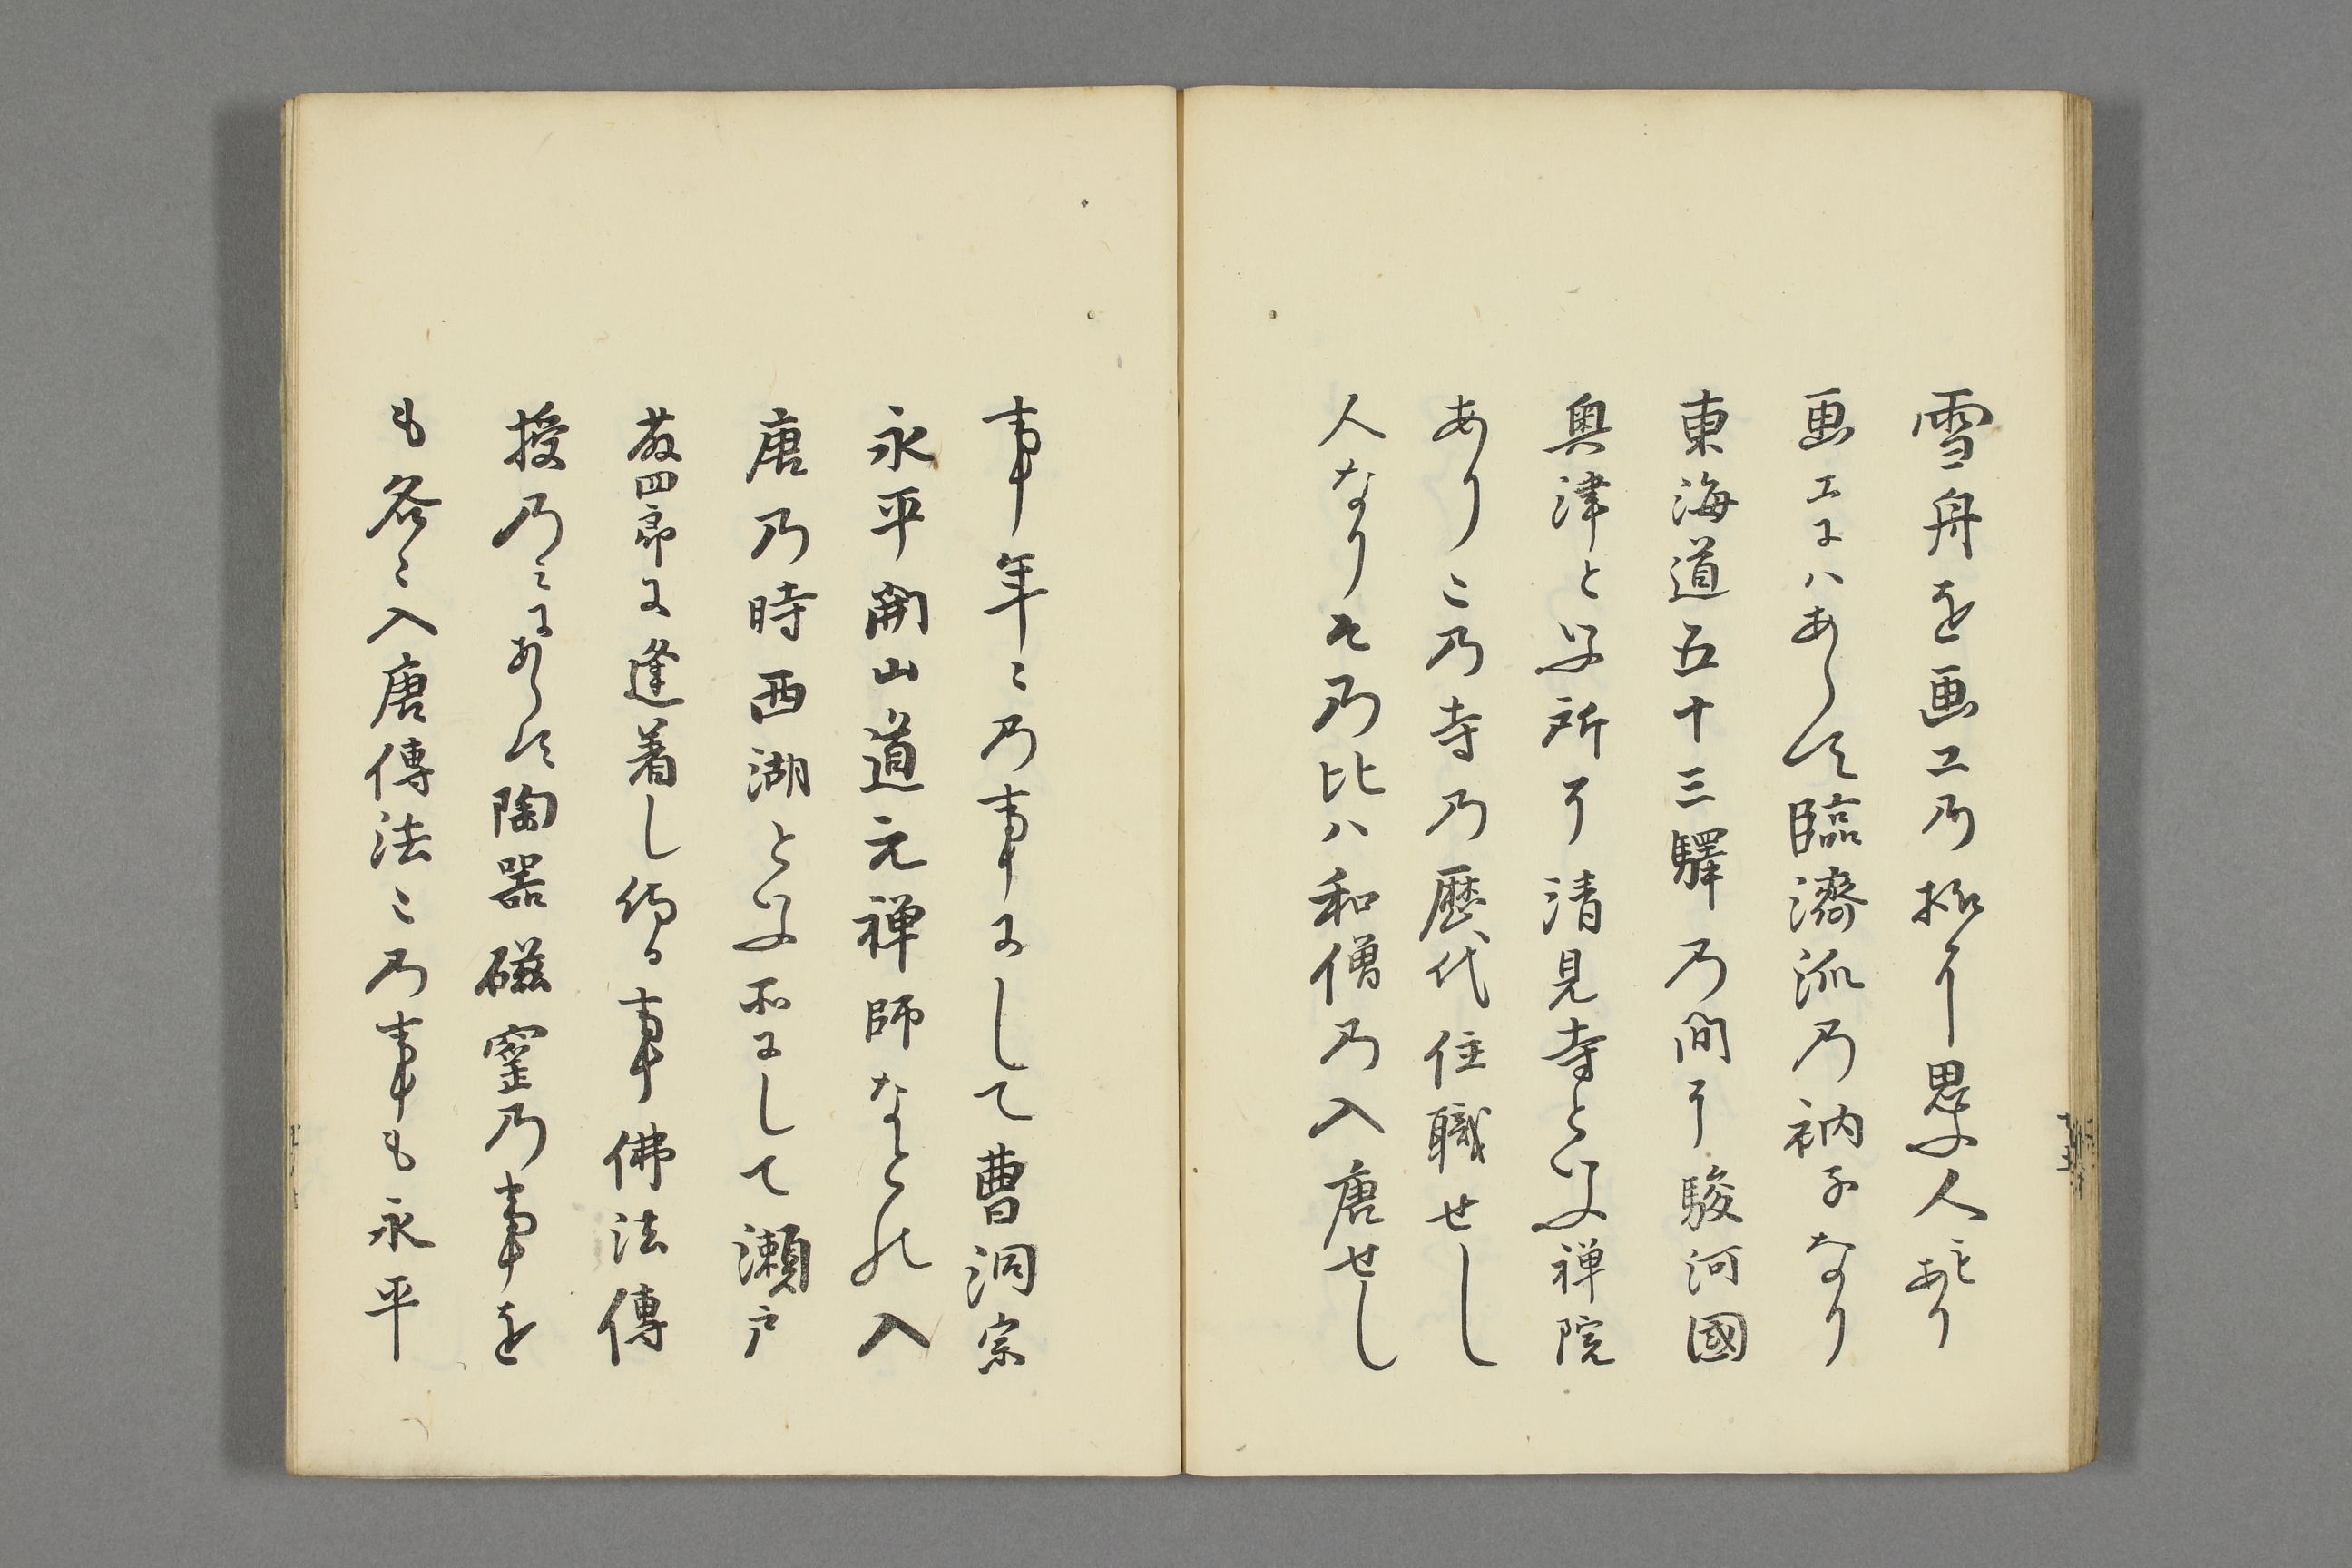 雪舟を画工乃抔ト思ふ人もあり
画工にハあらす臨濟派乃衲子なり
東海道五十三驛乃間ニ駿河國
奥津と云所ニ清見寺と云禅院
ありこ乃寺乃歴代住職せし
人なりそ乃比ハ和僧乃入唐せし
事年〻乃事にして曹洞宗
永平開山道元禅師なとの入
唐乃時西湖と云所にして瀬戸
藤四郎に逢着し給ふ事佛法傳
授乃ミにあらす陶器磁窯乃事を
も各〻入唐傳法こ乃事も永平